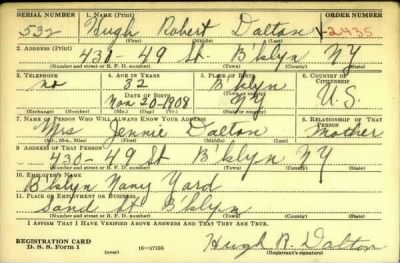 SERIAL NUMBER 1. NAME (Print) ORDER NUMBER
532 Hugh Robert Dalton V2435
(First) (Middle) (Last)
2. ADDRESS (Print)
430 - 49 St. B'klyn NY
(Number and street or R. F. D. number) (Town) (County) (State)
3. TELEPHONE 4. AGE IN YEARS 5. PLACE OF BIRTH 6. COUNTRY OF CITIZENSHIP
no 32 B'klyn
DATE OF BIRTH (Town or county)
Nov 20-1908 NY U.S.
(Exchange) (Number) (Mo.) (Day) (Yr.) (State or country)
7. NAME OF PERSON WHO WILL ALWAYS KNOW YOUR ADDRESS 8. RELATIONSHIP OF THAT PERSON
Mrs Jennie Dalton Mother
(Mr., Mrs., Miss) (First) (Middle) (Last)
9. ADDRESS OF THAT PERSON
430-49 St B'klyn NY
(Number and street or R. F. D. number) (Town) (County) (State)
10. EMPLOYER'S NAME
B'klyn Navy Yard
11. PLACE OF EMPLOYMENT OR BUSINESS
Sand St B'klyn
(Number and street or R. F. D. number) (Town) (County) (State)
I AFFIRM THAT I HAVE VERIFIED ABOVE ANSWERS AND THAT THEY ARE TRUE.
REGISTRATION CARD
D. S. S. Form 1 (over) 16—17105 Hugh R. Dalton
(Registrant's signature)